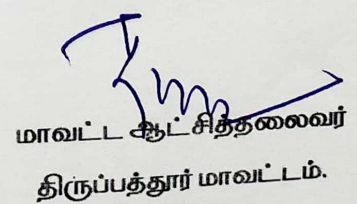 மாவட்ட ஆட்சித்தலைவர்
திருப்பத்தூர் மாவட்டம்.